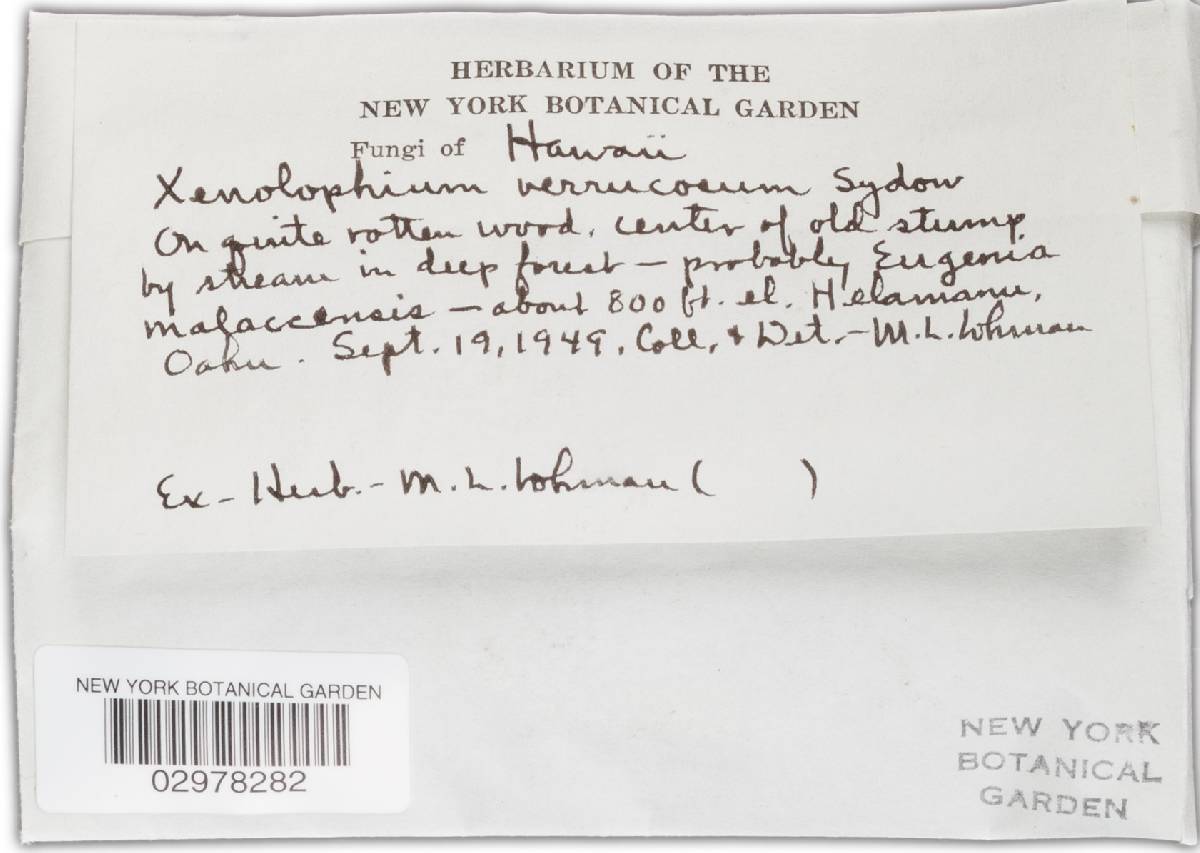 HERBARIUM OF THE
NEW YORK BOTANICAL GARDEN
Fungi of Hawaii
Xenolophium verrucosum Sydow
On quite rotten wood, center of old stump
by stream in deep forest — probably Eugenia
malaccensis — about 800 ft. el. Helamanu,
Oahu. Sept. 19, 1949, Coll. & Det. - M.L. Lohman
Ex - Herb. - M. L. Lohman ( )
NEW YORK BOTANICAL GARDEN
02978282
NEW YORK
BOTANICAL
GARDEN